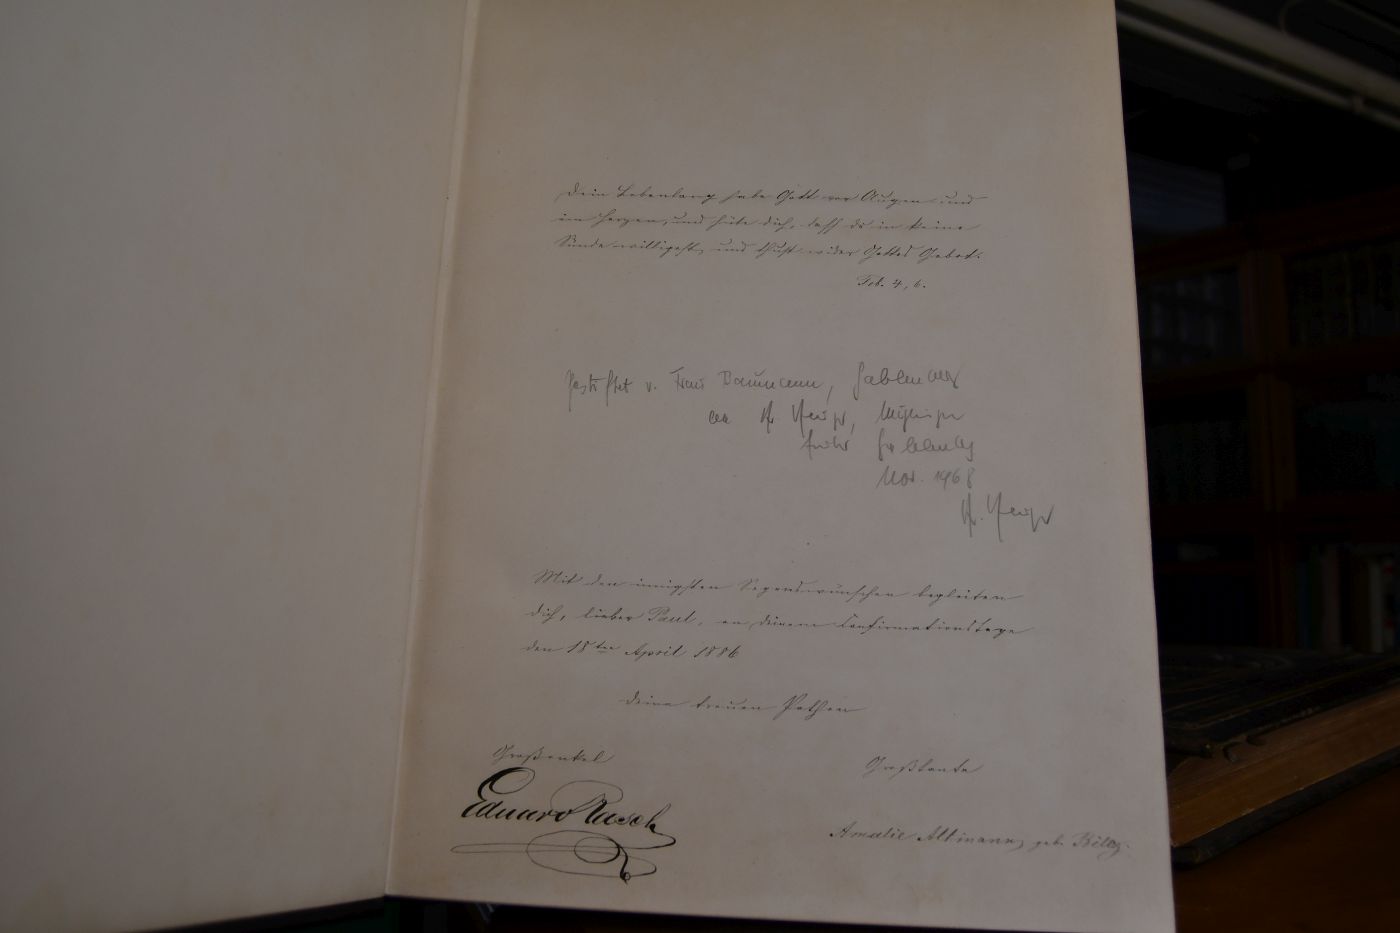 Dein Lebenlang habe Gott vor Augen und
im Herzen, und hüte dich, daß du in keine
Sünde willigest, und thust wider Gottes Gebot.
Tob. 4, 6.
Gestiftet v. Frau Baumann,
an
früher
Nov. 1968
Mit den innigsten Segenswünschen begleiten
dich, lieber Paul, an deinem Confirmationstage
den 18ten April 1886
deine treuen Pathen
Großonkel
Großtante
Eduard Rasch
Amalie Altmann, geb.